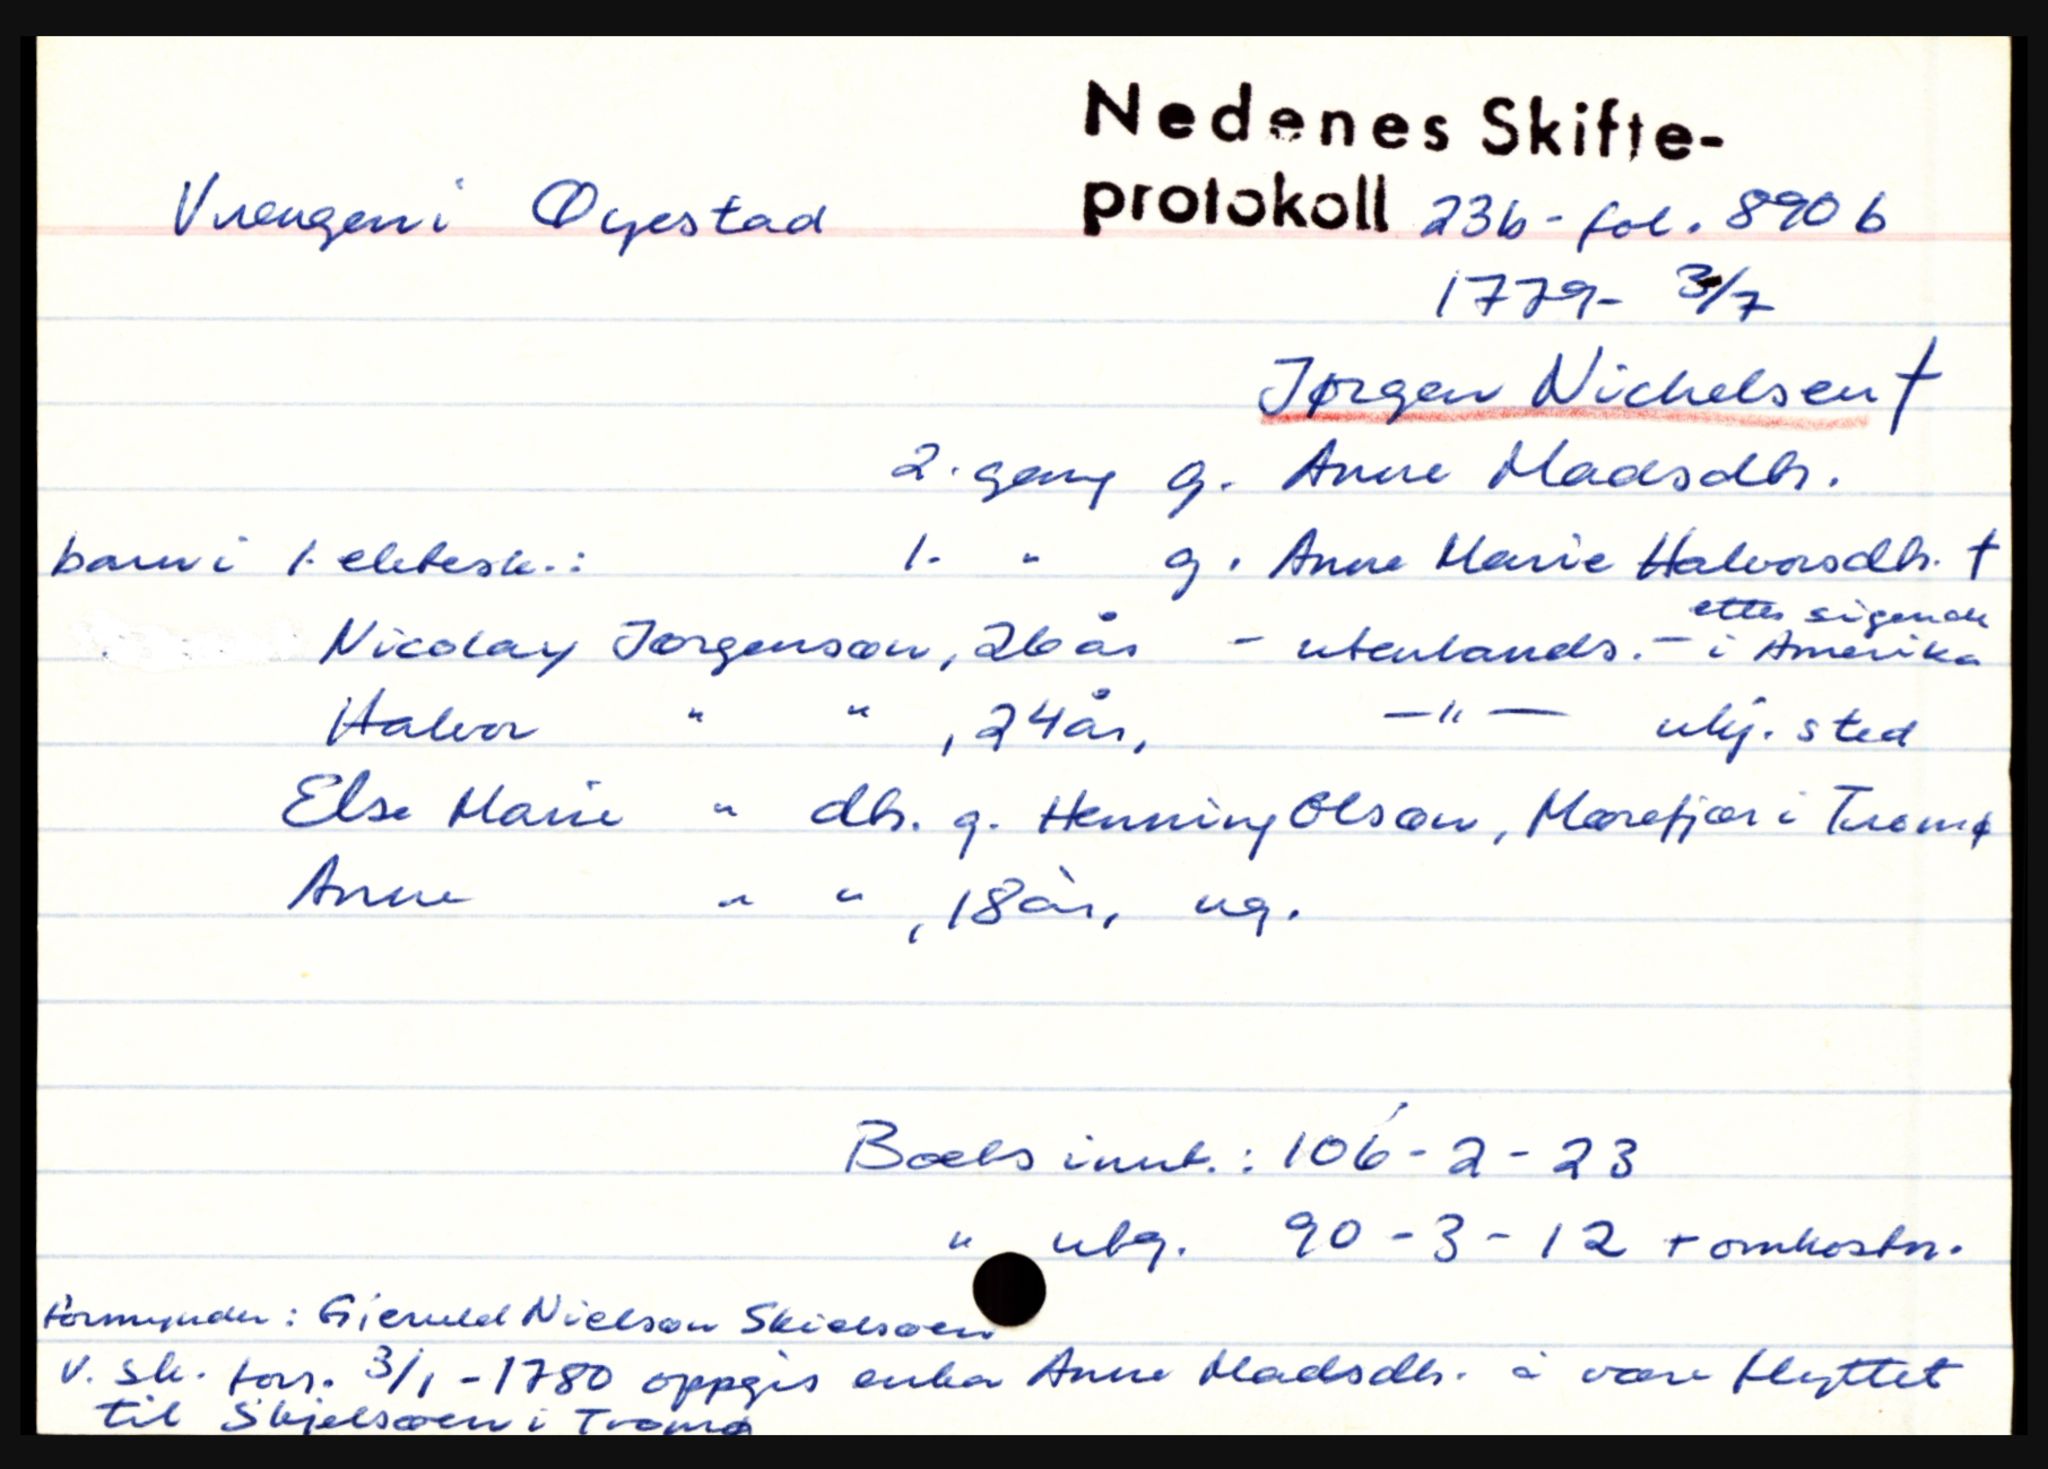 Nedenes Skifte-
protokoll 23b - fol. 890 b
Vrengen i Øyestad
1779 - 3/7
Jørgen Nichelsen †
2. gang g. Anne Madsdtr.
barn i 1. ektesk.: 1. " g. Anne Marie Halvorsdtr. †
Nicolay Jørgensøn, 26 år - utenlands. - etter sigende i Amerika
Halvor " " , 24 år, - " - ukj. sted
Else Marie " dtr. g. Henning Olsøn, Mørefjær i Tromø
Anne " " , 18 år, ug.
Boets innt.: 106 - 2 - 23
" utg. 90 - 3 - 12 + omkostn.
Formynder: Gjeruld Nielsøn Skielsøen
v. sk. forr. 3/1 - 1780 oppgis enka Anne Madsdtr. å være flyttet
til Skjelsøen i Tromø